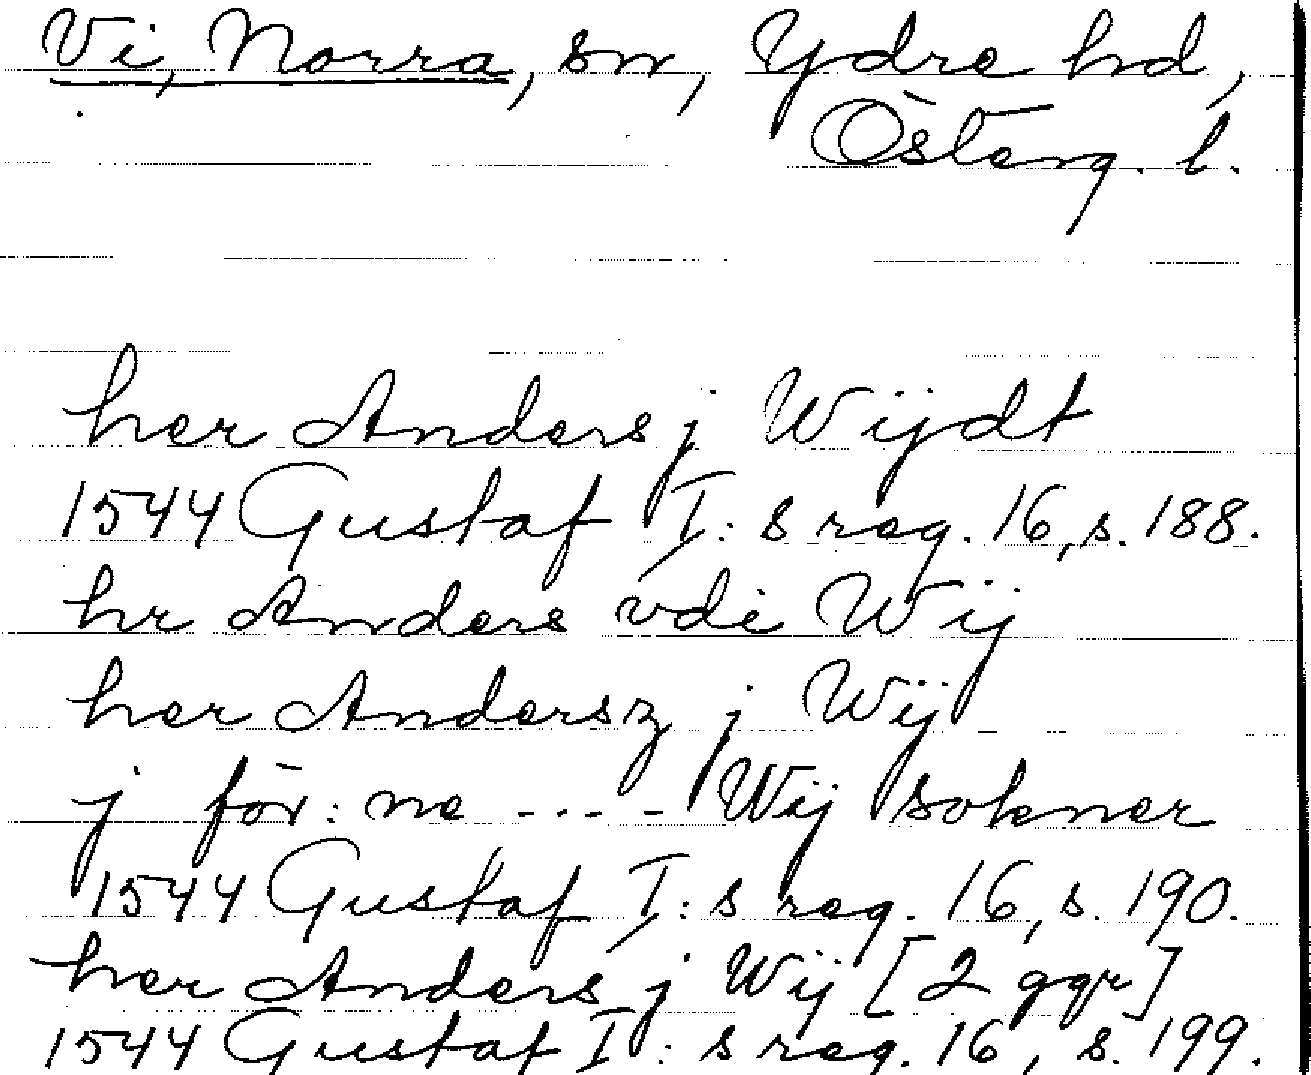 Vi, Norra, sn, Ydre hd,
Österg. l.
her Anders j Wijdt
1544 Gustaf I:s reg. 16, s. 188.
hr Anders vdi Wij
her Andersz j Wij
j för:ne ---- Wij sokner
1544 Gustaf I:s reg. 16, s. 190.
her Anders j Wij [2 ggr]
1544 Gustaf I:s reg. 16, s. 199.